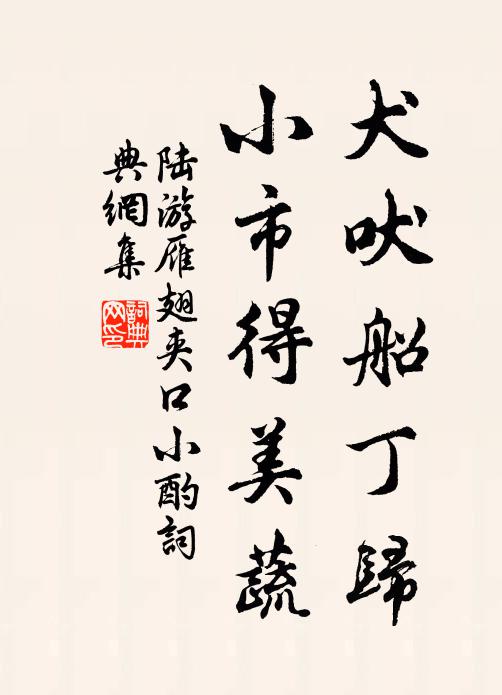 犬吠船丁歸
小市得美蔬
陆游雁翅夾口小酌詞
典網集
詞典
网印